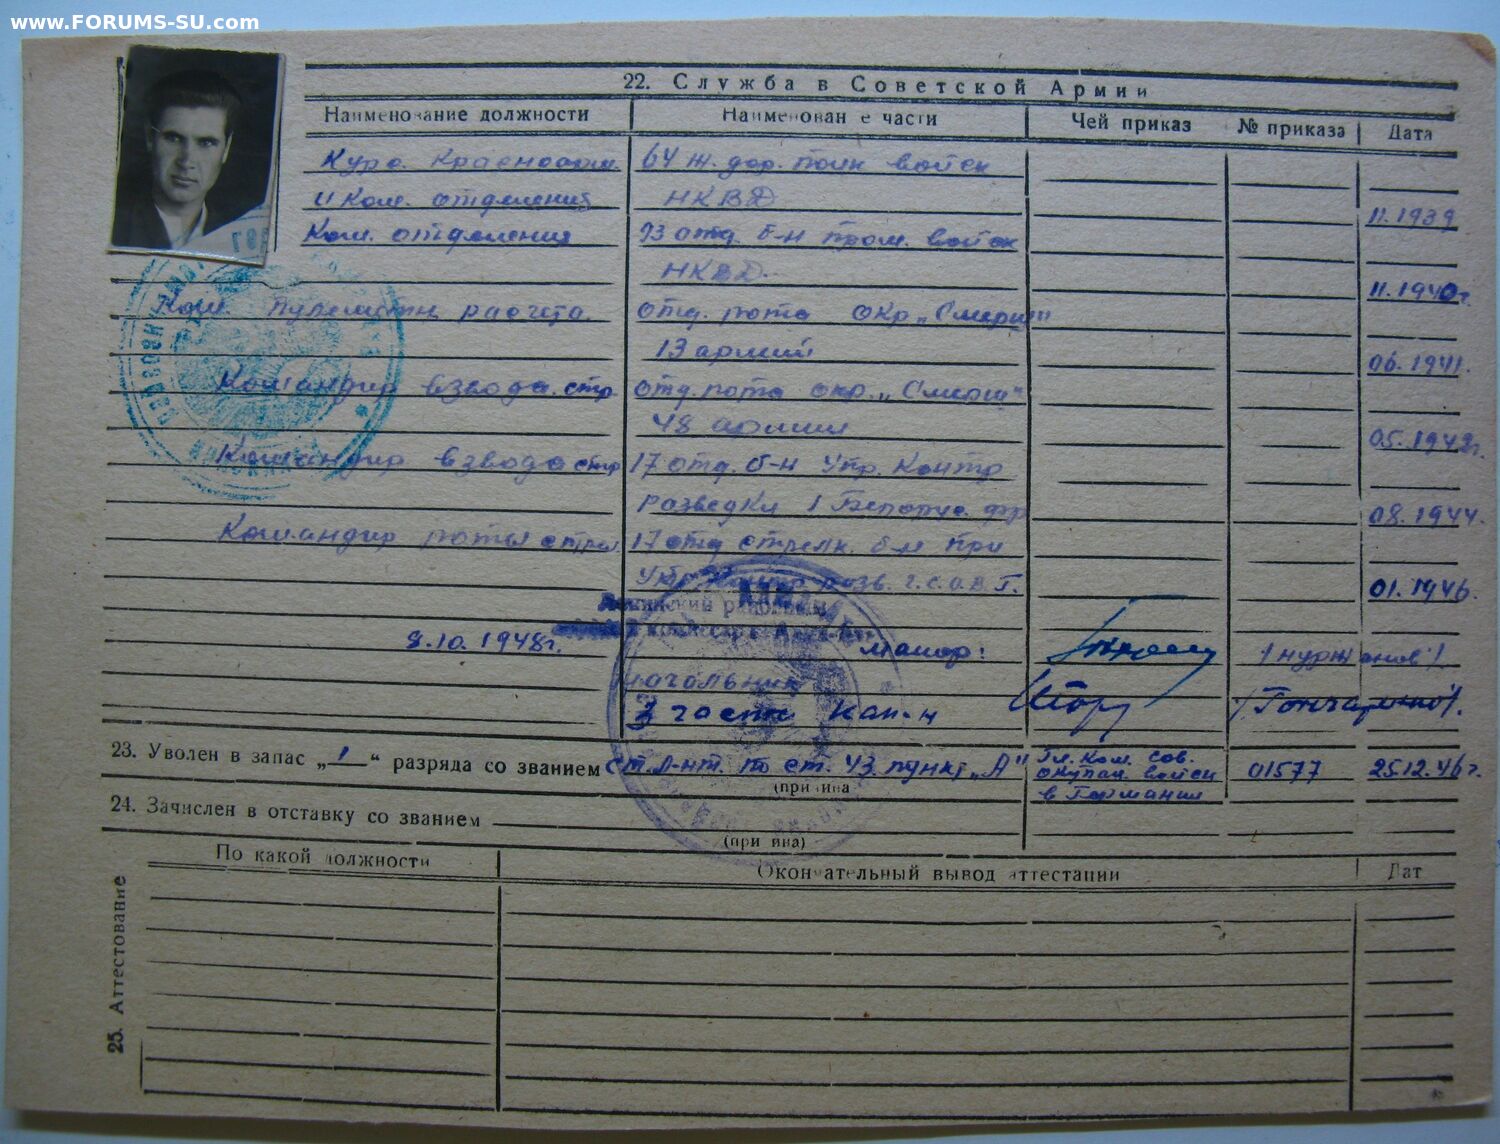 www.FORUMS-SU.com
22. Служба в Советской Армии
Наименование должности Наименован е части Чей приказ № приказа Дата
Курс. Красноарм. 64 ж. дор. полк войск
и Ком. отделения НКВД 11.1939
Ком. отделения 93 отд. б-н пром. войск
НКВД. 11.1940г.
Ком. пулеметн. расчета. отд. рота ОКР „Смерш"
13 армии 06.1941.
Командир взвода стр отд. рота окр. „Смерш"
48 армии 05.1942г.
Командир взвода стр 17 отд. б-н Упр. Контр
разведки 1 Белорус. фр 08.1944.
Командир роты стрел. 17 отд стрелк. б-н при
Упр. Контр разв. г.С.О.В.Г. 01.1946.
8.10.1948г. майор:
начальник
3 части кап-н
23. Уволен в запас „1" разряда со званием ст. л-нт. по ст. 43 пункт „А" Гл. Ком. Сов. оккупац. войск в Германии 01577 25.12.46г.
(при ина
24. Зачислен в отставку со званием
(при ина)
По какой должности Окон ательный вывод аттестации Дат
25. Аттестование